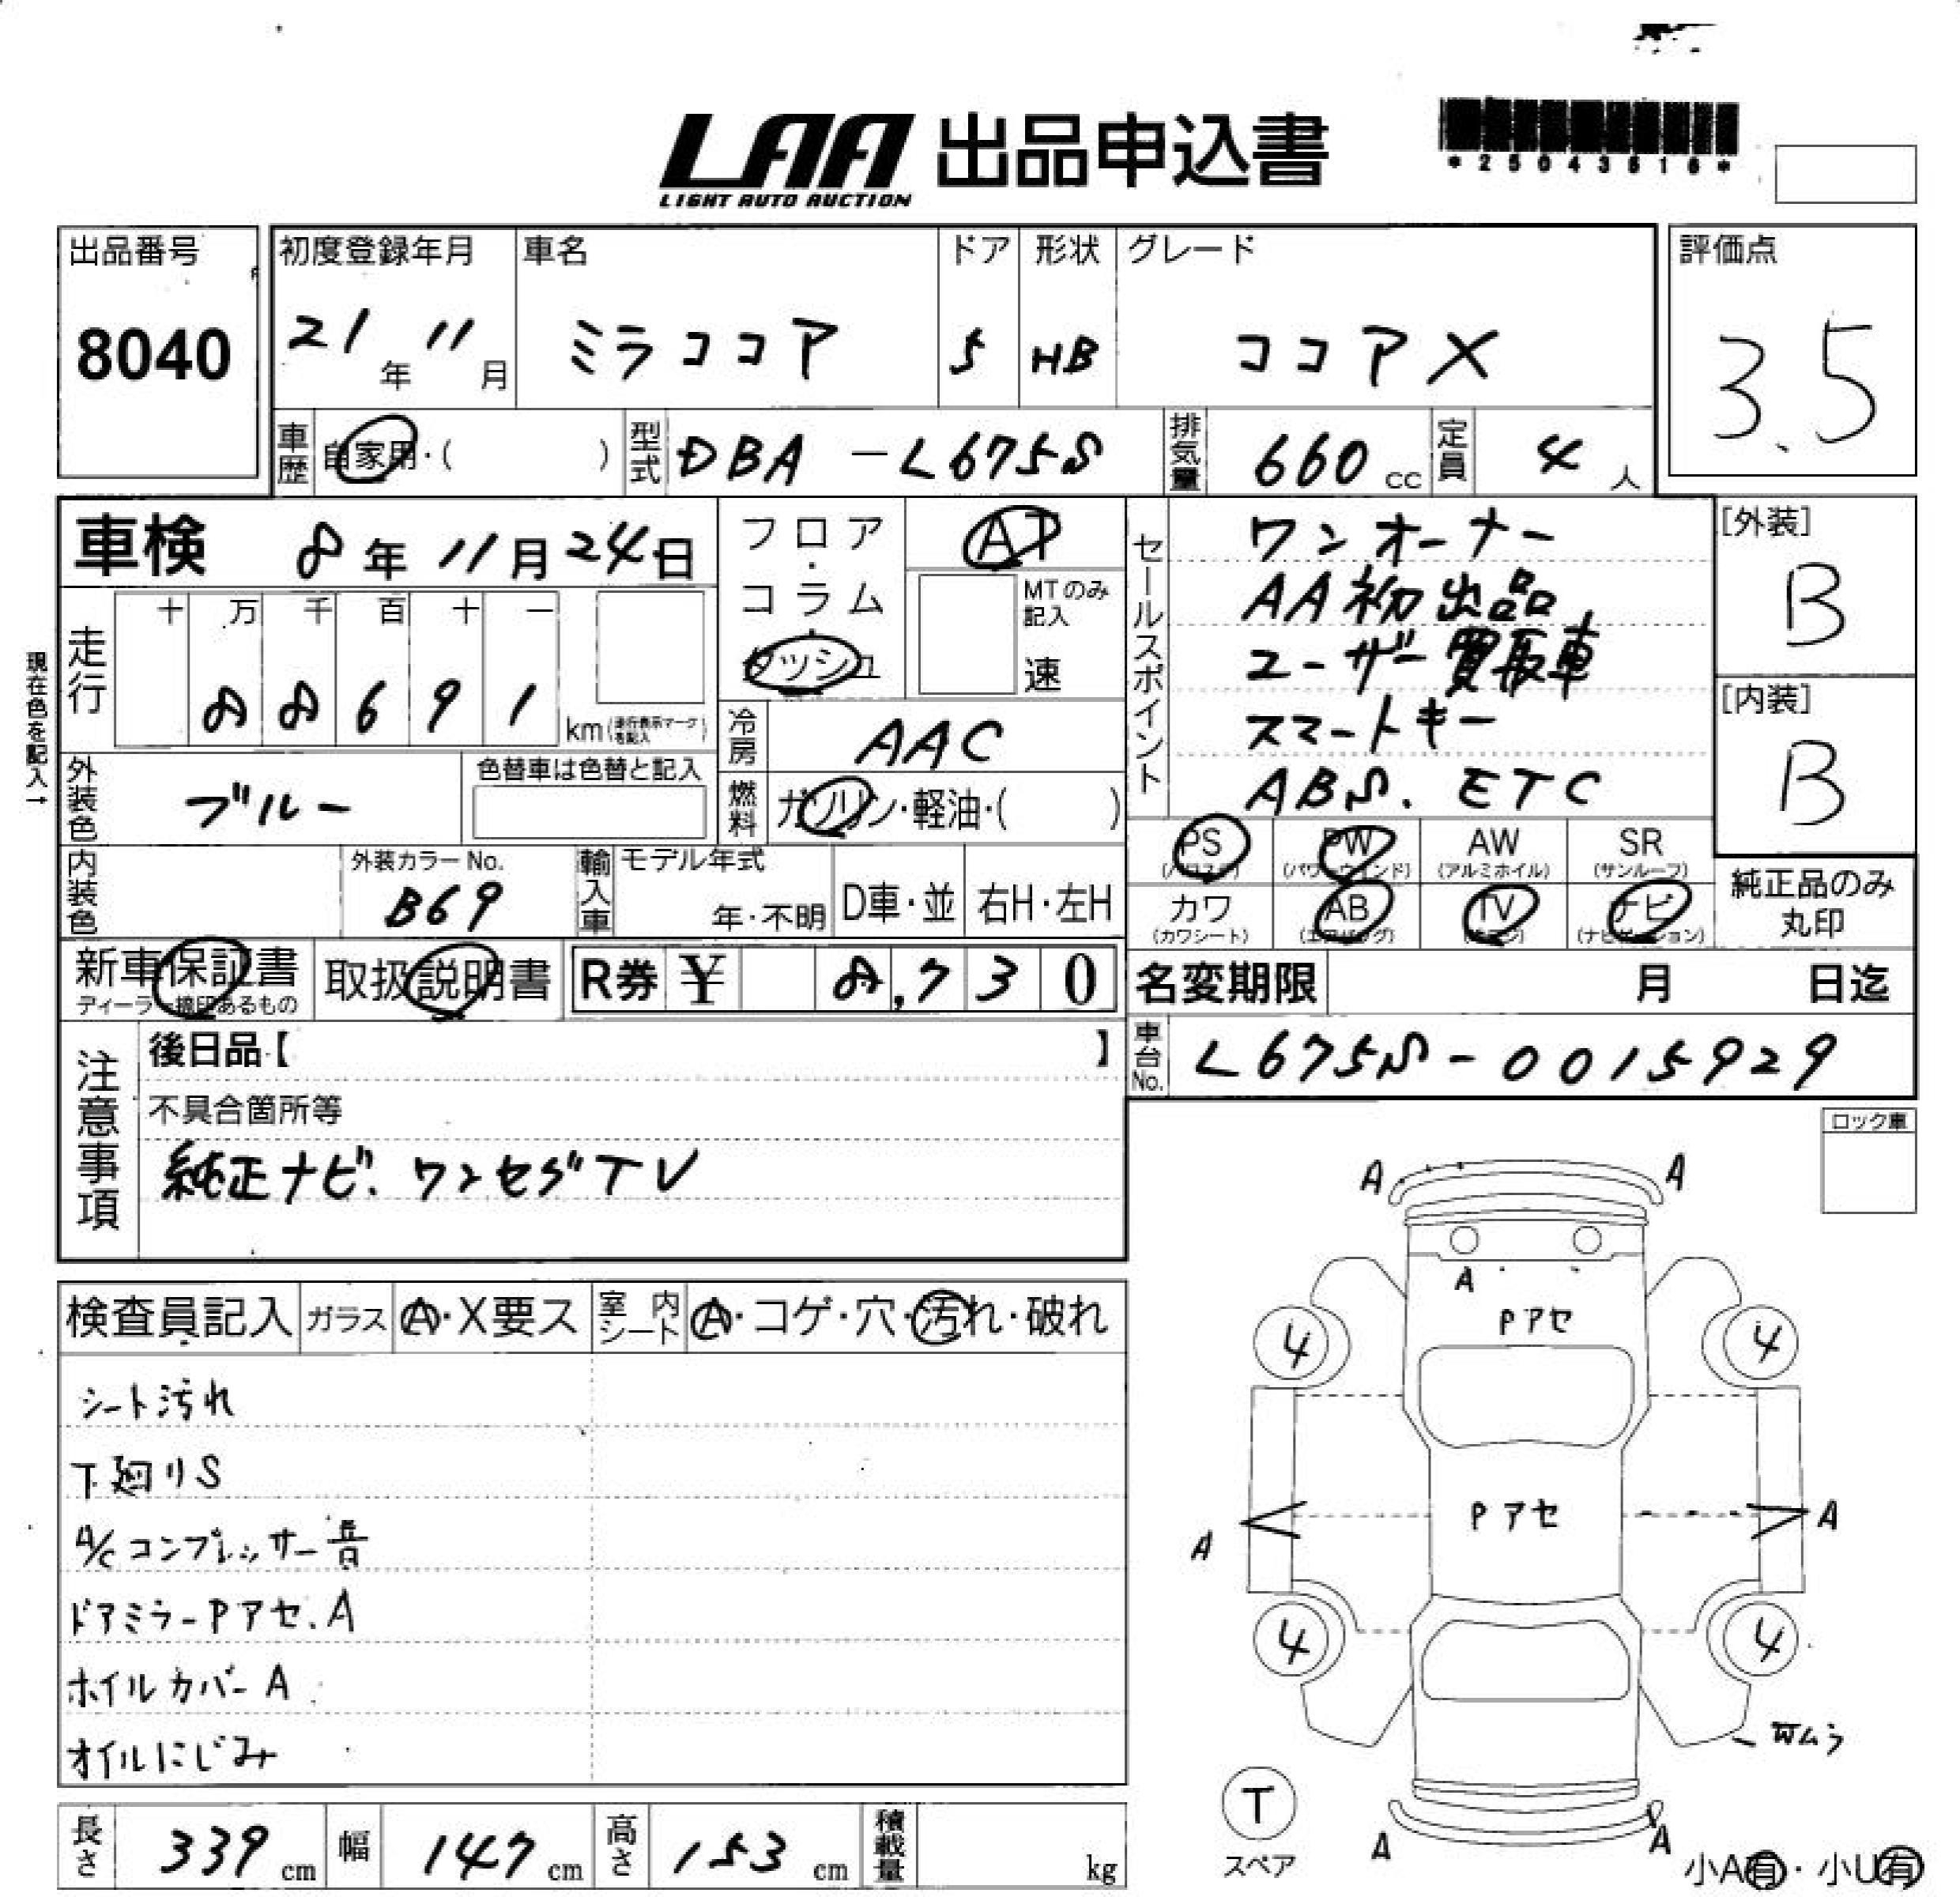 LAA 出品申込書
LIGHT AUTO AUCTION
*25043616*
出品番号
8040
初度登録年月
21年 11月
車名
ミラココア
ドア
5
形状
HB
グレード
ココアX
評価点
3.5
車歴
自家用・( )
型式
DBA-L675S
排気量
660 cc
定員
4 人
車検 8年 11月 24日
フロア・コラム・ダッシュ
AT
MTのみ記入
速
現在色を記入→
走行
十 万 千 百 十 一
88691
km(走行表示マークを記入)
冷房
AAC
外装色
ブルー
色替車は色替と記入
燃料
ガソリン・軽油・( )
内装色
外装カラーNo.
B69
輸入車
モデル年式
年・不明
D車・並
右H・左H
セールスポイント
ワンオーナー
AA初出品
ユーザー買取車
スマートキー
ABS. ETC
[外装]
B
[内装]
B
PS
(パワステ)
PW
(パワーウインド)
AW
(アルミホイル)
SR
(サンルーフ)
カワ
(カワシート)
AB
(エアバッグ)
TV
ナビ
(ナビゲーション)
純正品のみ
丸印
新車保証書
ディーラー捺印あるもの
取扱説明書
R券 ¥ 8,730
名変期限 月 日迄
注意事項
後日品【 】
車台No.
L675S-0015929
不具合箇所等
純正ナビ. ワンセグTV
ロック車
検査員記入
ガラス
A・X要ス
室内シート
A・コゲ・穴・汚れ・破れ
シート汚れ
下廻りS
A/Cコンプレッサー音
ドアミラーPアセ.A
ホイルカバーA
オイルにじみ
A A
A
Pアセ
4 4
Pアセ
A A
4 4
T
スペア
A A
小A有・小U有
長さ
339 cm
幅
147 cm
高さ
153 cm
積載量
kg